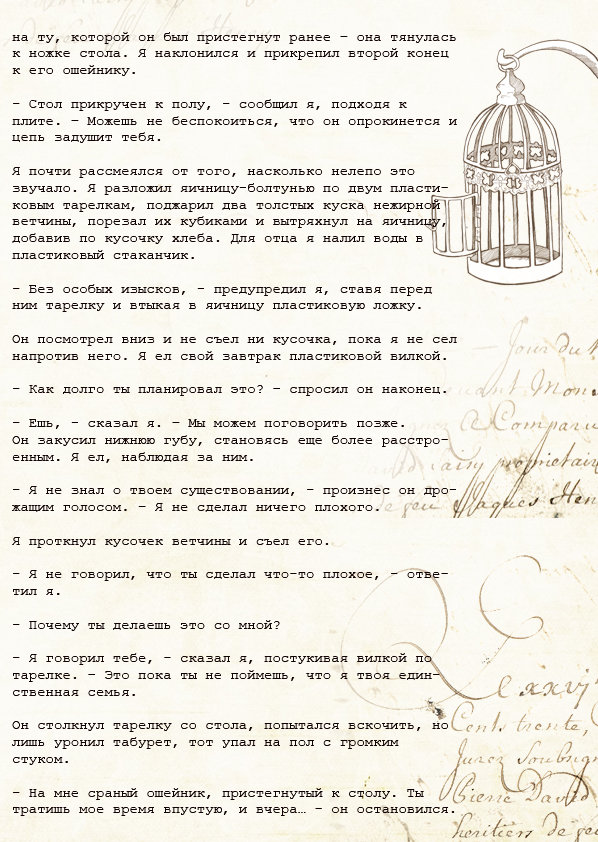 на ту, которой он был пристегнут ранее – она тянулась
к ножке стола. Я наклонился и прикрепил второй конец
к его ошейнику.
– Стол прикручен к полу, – сообщил я, подходя к
плите. – Можешь не беспокоиться, что он опрокинется и
цепь задушит тебя.
Я почти рассмеялся от того, насколько нелепо это
звучало. Я разложил яичницу-болтунью по двум пласти-
ковым тарелкам, поджарил два толстых куска нежирной
ветчины, порезал их кубиками и вытряхнул на яичницу,
добавив по кусочку хлеба. Для отца я налил воды в
пластиковый стаканчик.
– Без особых изысков, – предупредил я, ставя перед
ним тарелку и втыкая в яичницу пластиковую ложку.
Он посмотрел вниз и не съел ни кусочка, пока я не сел
напротив него. Я ел свой завтрак пластиковой вилкой.
– Как долго ты планировал это? – спросил он наконец.
– Ешь, – сказал я. – Мы можем поговорить позже.
Он закусил нижнюю губу, становясь еще более расстро-
енным. Я ел, наблюдая за ним.
– Я не знал о твоем существовании, – произнес он дро-
жащим голосом. – Я не сделал ничего плохого.
Я проткнул кусочек ветчины и съел его.
– Я не говорил, что ты сделал что-то плохое, – отве-
тил я.
– Почему ты делаешь это со мной?
– Я говорил тебе, – сказал я, постукивая вилкой по
тарелке. – Это пока ты не поймешь, что я твоя един-
ственная семья.
Он столкнул тарелку со стола, попытался вскочить, но
лишь уронил табурет, тот упал на пол с громким
стуком.
– На мне сраный ошейник, пристегнутый к столу. Ты
тратишь мое время впустую, и вчера… – он остановился.
Jour du
Mon
Comparu
proprietair
Jaques Hen
Cents trente,
Pierre David
heritiers de feu